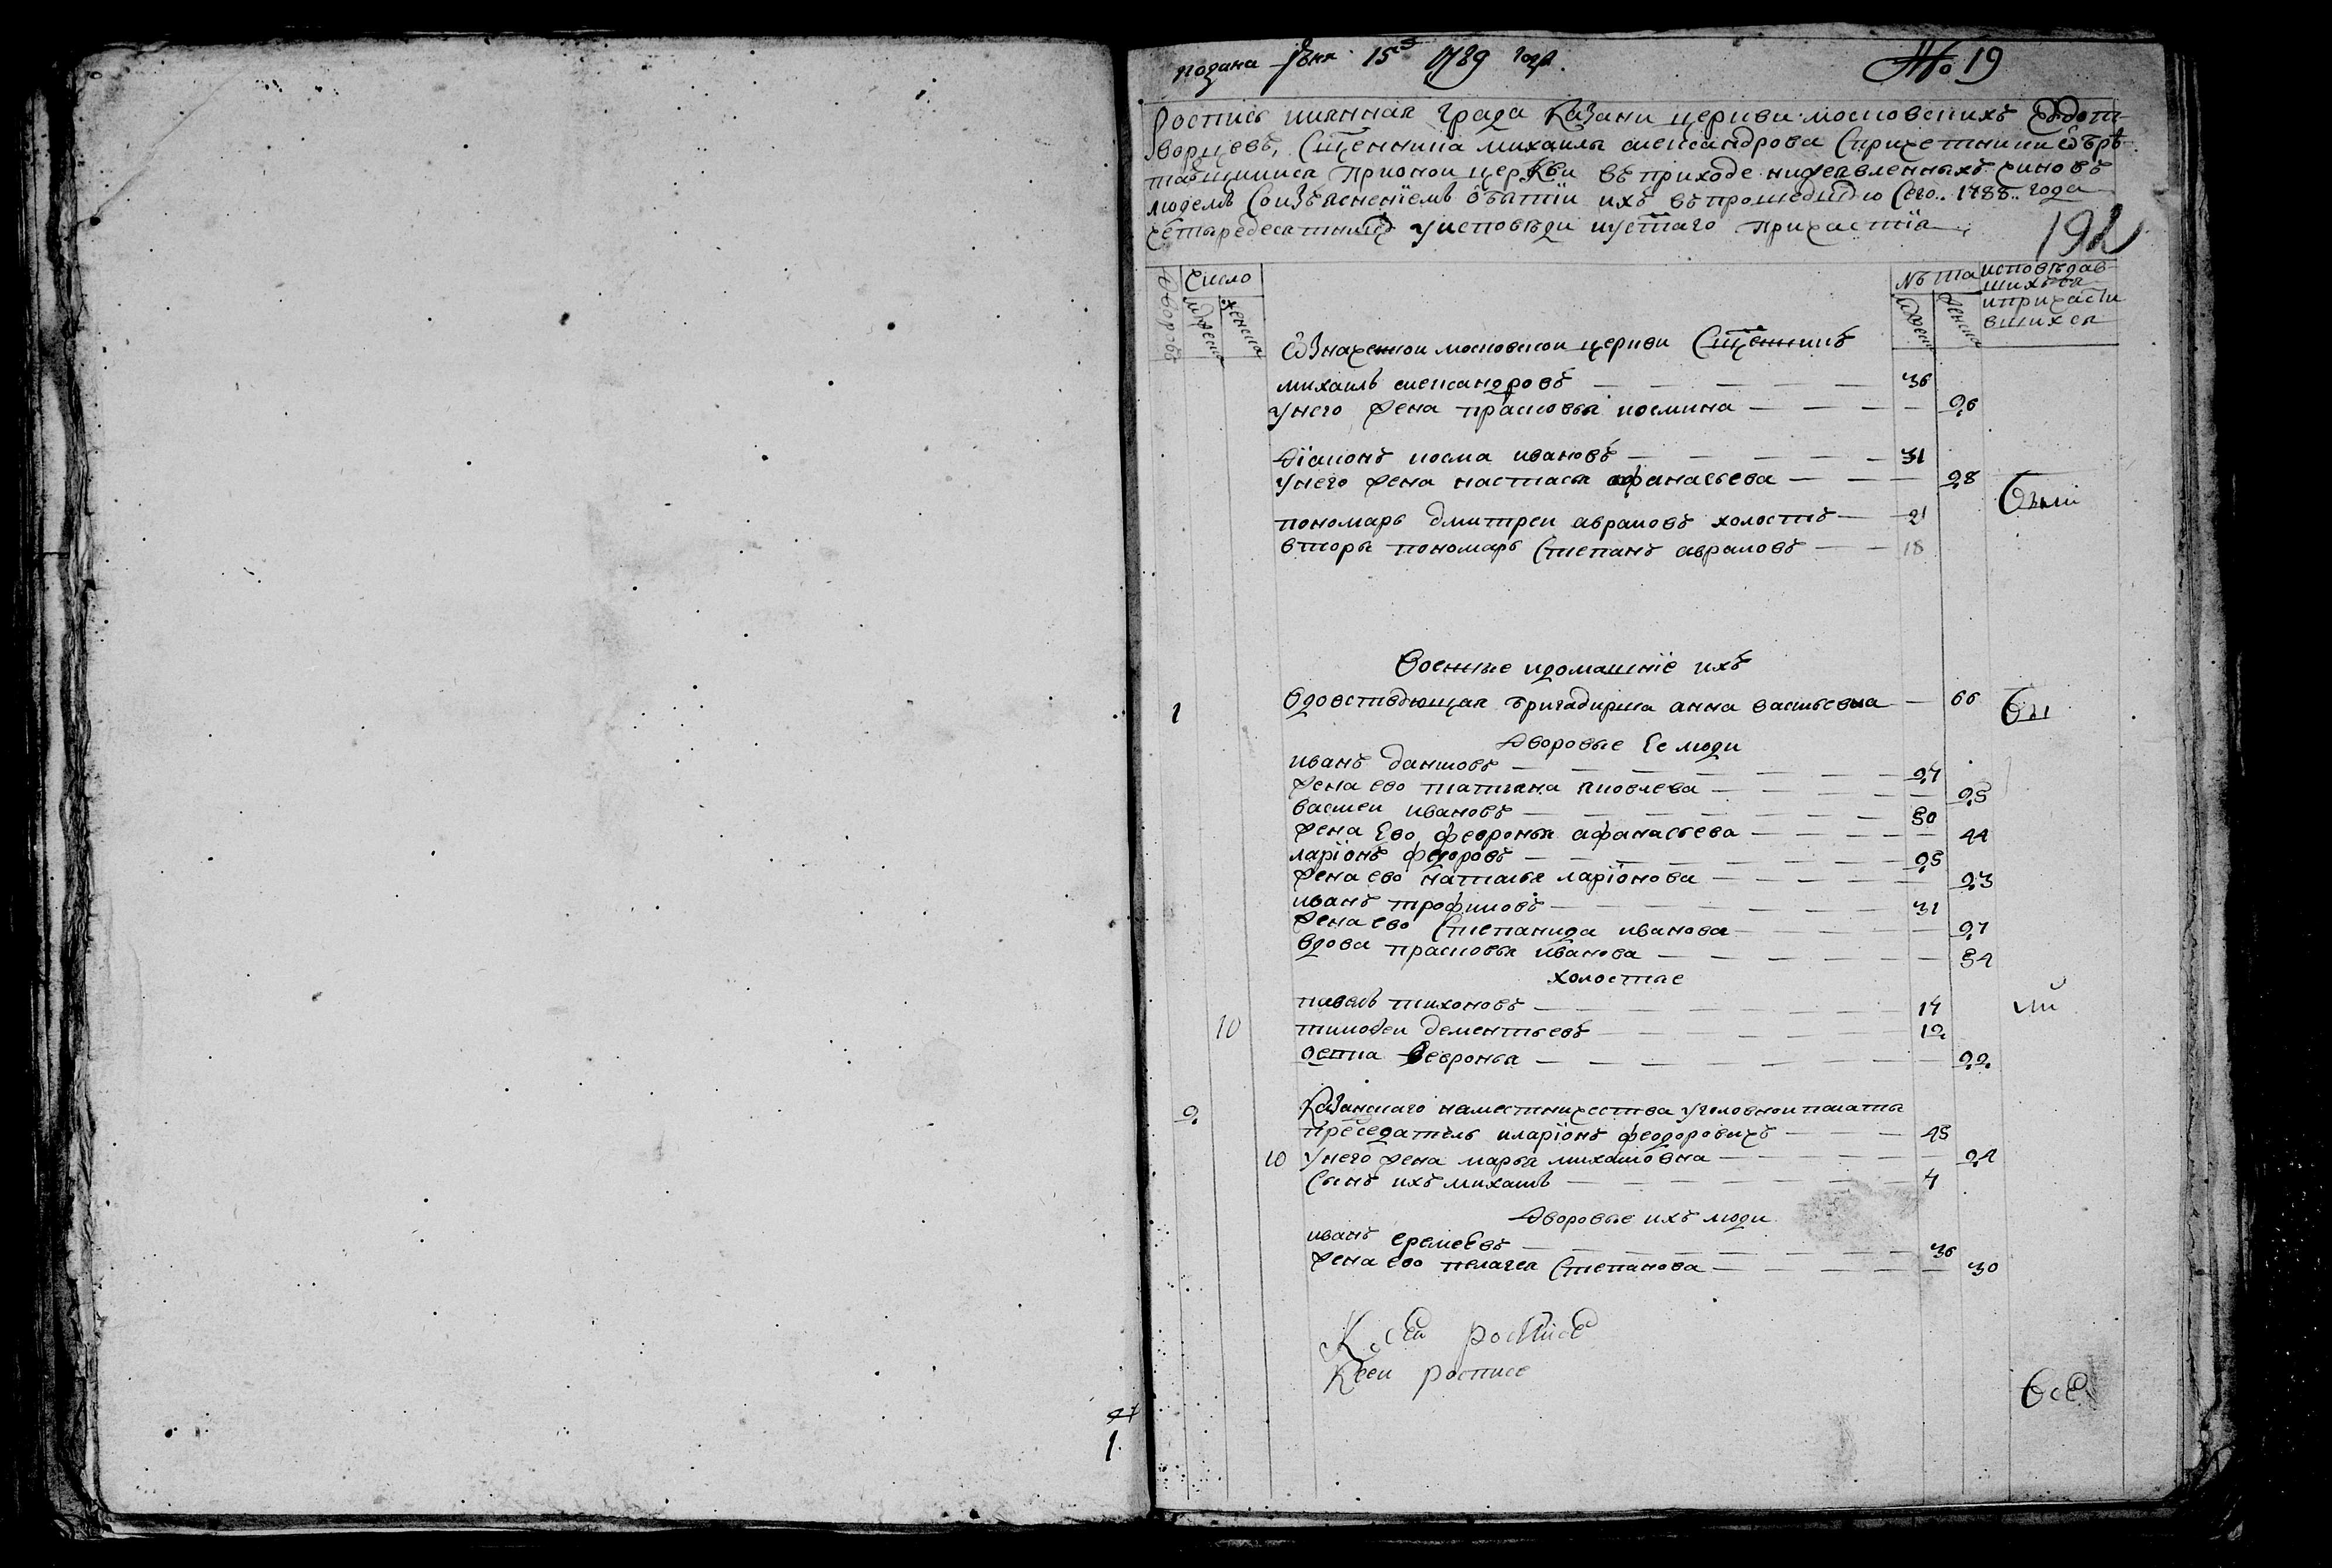 подана 15 1789 года
№ 19
Роспись имянная града Казани церкви московскихъ чюдот
ворцевъ, сщенника михаила александрова спричетники обрѣ
тающимися прионой церкви въ приходе нижеявленныхъ чиновъ
людемъ соизъясненїемъ о бытїи ихъ въ прошедшую сего 1788 года
четыредесятницу у исповѣди и устаго причастїя
192
дворовъ
Число
мужеска
женска
Лѣта
мужеска
женска
исповѣдав
шихся
и причасти
вшихся
Означенной московской церкви Сщенникъ
михаилъ александровъ 36
у него жена прасковья космина 26
Дїаконъ косма ивановъ 31
у него жена настасья афанасьева 28
были
пономарь дмитреи аврамовъ холостъ 21
вторы пономарь Степанъ аврамовъ 18
Военные и домашнїе ихъ
1 Вдовствующая бригадирша анна васильевна 66
бы
Дворовые Ее люди
иванъ даниловъ 27
жена ево татьяна яковлева 25
василеи ивановъ 50
жена Ево февронья афанасьева 44
ларїонъ федоровъ 25
жена ево наталья ларїонова 23
иванъ трофимовъ 31
жена ево Степанида иванова 27
вдова прасковья иванова 54
холостые
павелъ тихоновъ 17
ли
10 тимофеи дементьевъ 12
девка февронья 22
2 Казанскаго наместничества уголовнои палаты
председатель иларїонъ феодоровичъ 45
10 у него жена марья михаиловна 24
сынъ ихъ михаилъ 4
Дворовые ихъ люди
иванъ еремеевъ 36
жена ево пелагея Степанова 30
К сеи росписе
К сеи росписе
все
1